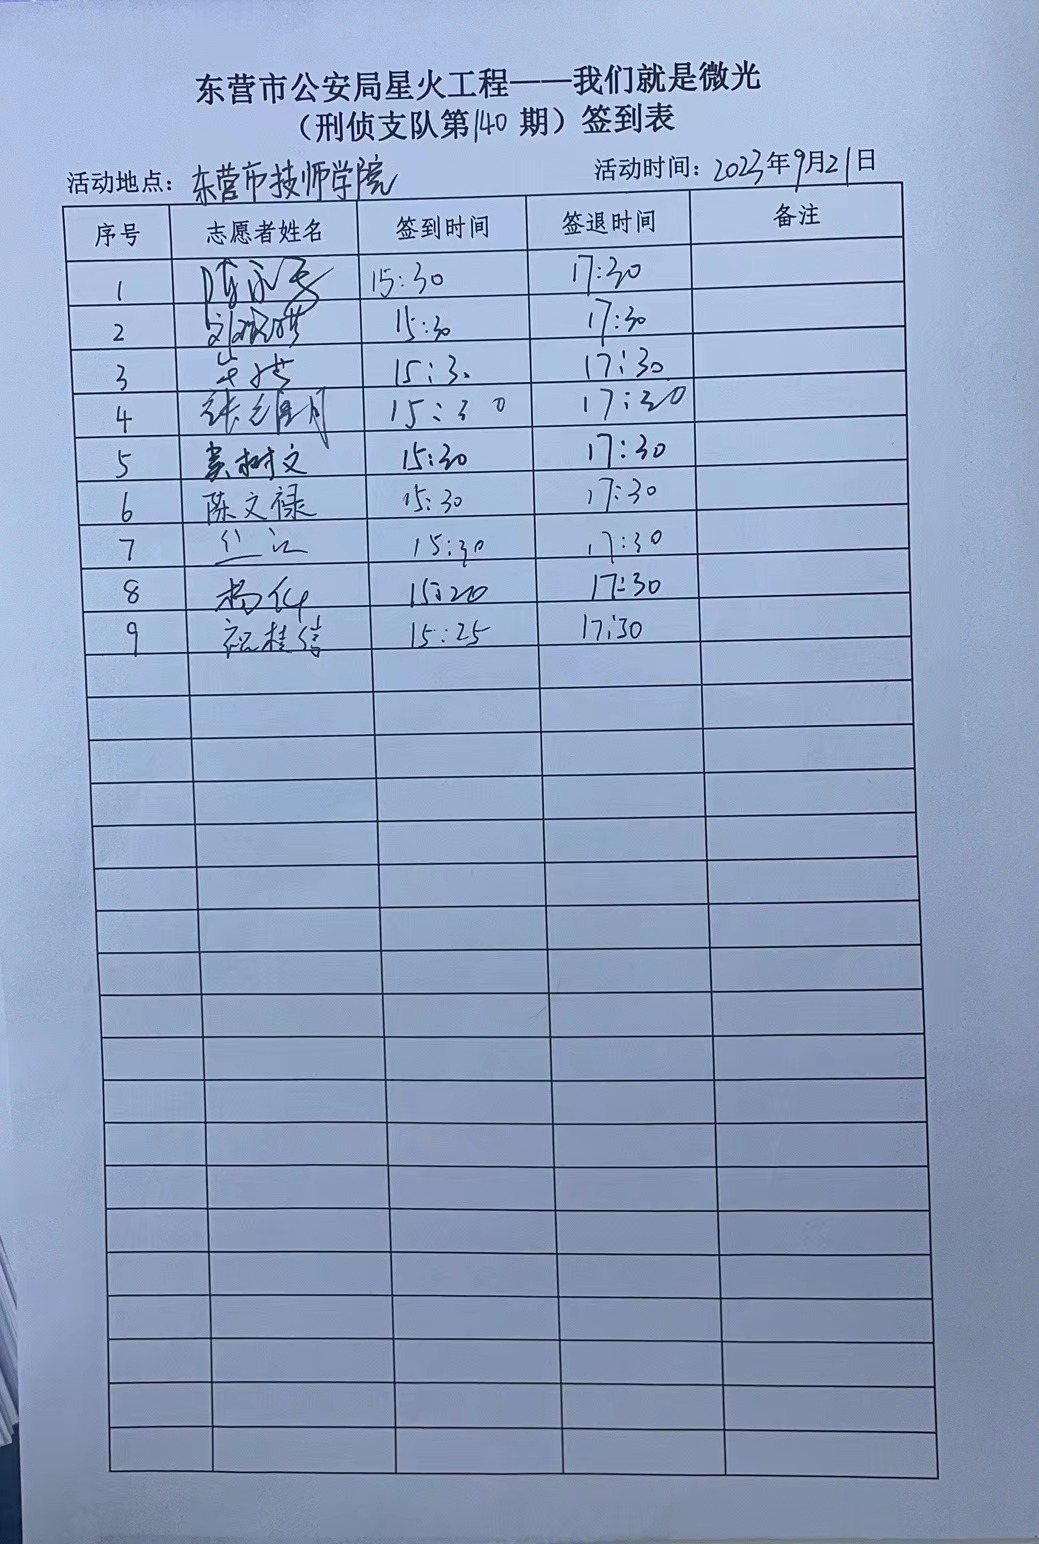 东营市公安局星火工程——我们就是微光
（刑侦支队第140期）签到表
活动地点：东营市技师学院 活动时间：2023年9月21日
序号 志愿者姓名 签到时间 签退时间 备注
1 15:30 17:30
2 15:30 17:30
3 15:30 17:30
4 15:30 17:30
5 娄树文 15:30 17:30
6 陈文禄 15:30 17:30
7 15:30 17:30
8 15:20 17:30
9 祝桂信 15:25 17:30